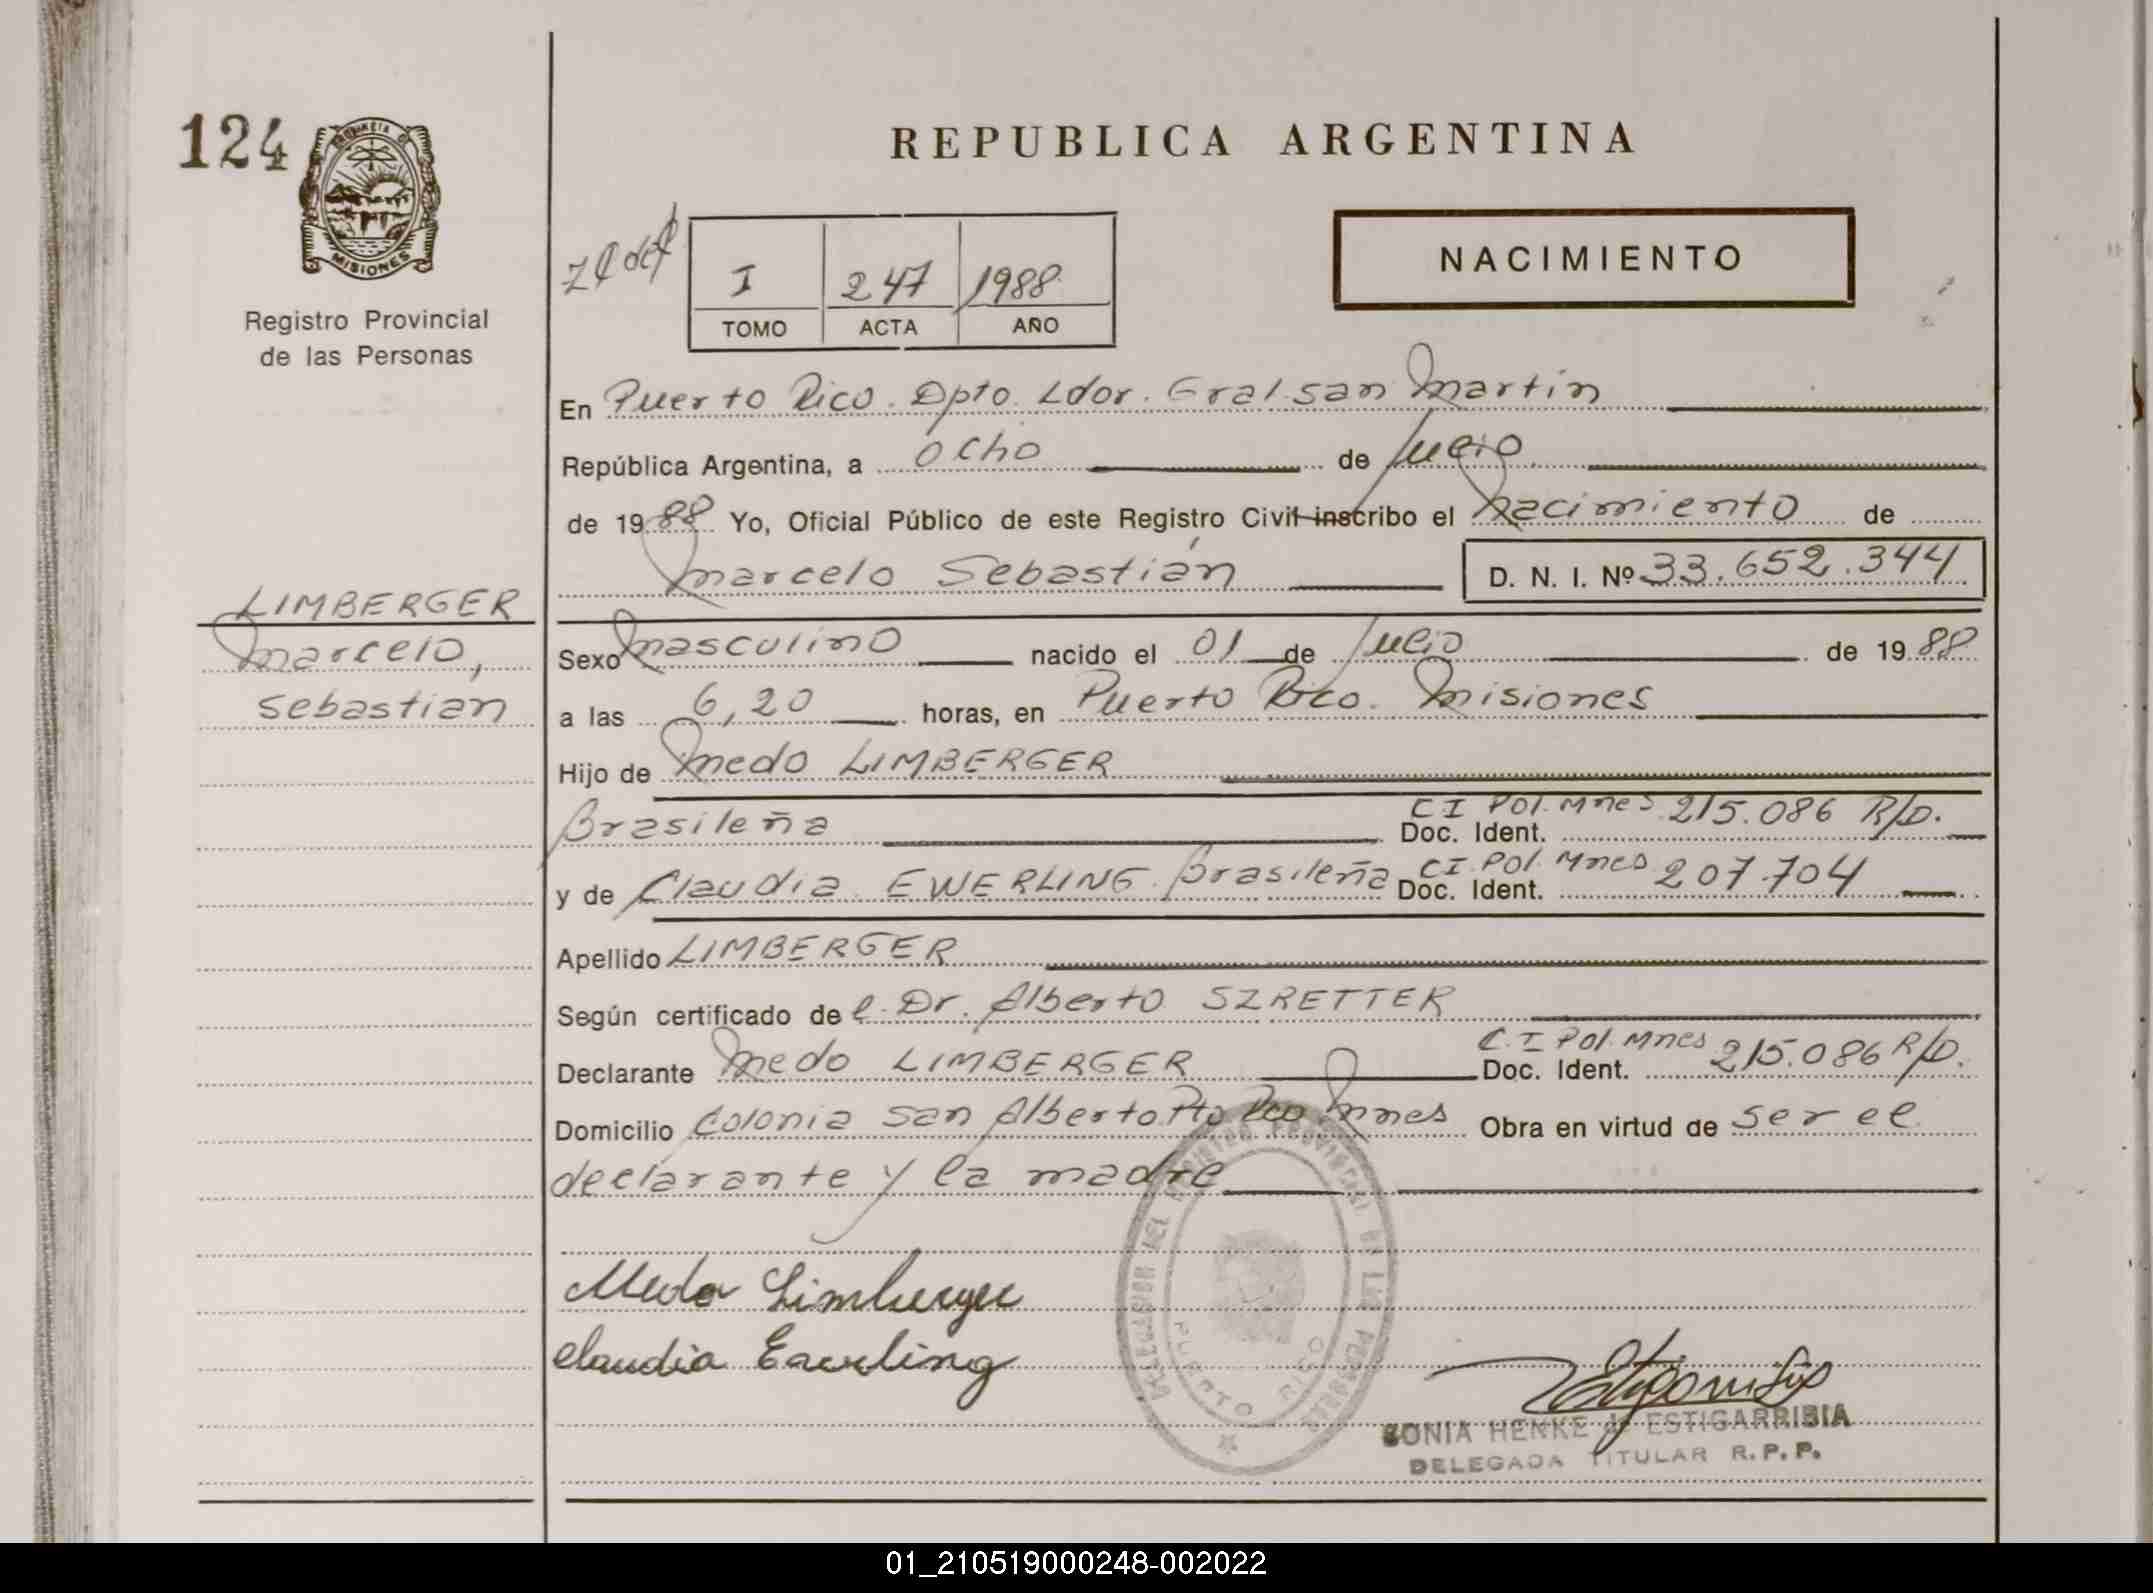 124
PROVINCIA DE
MISIONES
Registro Provincial
de las Personas
REPUBLICA ARGENTINA
I 247 1988
TOMO ACTA AÑO
NACIMIENTO
En Puerto Rico. Dpto. Ldor. Gral. San Martín
República Argentina, a ocho de Julio
de 1988 Yo, Oficial Público de este Registro Civil inscribo el Nacimiento de
Marcelo Sebastián D. N. I. Nº 33.652.344
LIMBERGER
Marcelo,
Sebastian
Sexo Masculino nacido el 01 de Julio de 1988
a las 6,20 horas, en Puerto Rico. Misiones
Hijo de Medo LIMBERGER
Brasileña CI Pol. Mnes Doc. Ident. 215.086 R/D.
y de Claudia EWERLING. Brasileña CI. Pol. Mnes Doc. Ident. 207.704
Apellido LIMBERGER
Según certificado del Dr. Alberto SZRETTER
Declarante Medo LIMBERGER C.I Pol. Mnes Doc. Ident. 215.086 R/D.
Domicilio Colonia San Alberto Pto Rco Mnes Obra en virtud de ser el
declarante y la madre
DELEGACION DEL REGISTRO PROVINCIAL DE LAS PERSONAS
PUERTO RICO
Medo Limberger
Claudia Ewerling
SONIA HENKE de ESTIGARRIBIA
DELEGADA TITULAR R.P.P.
01_210519000248-002022